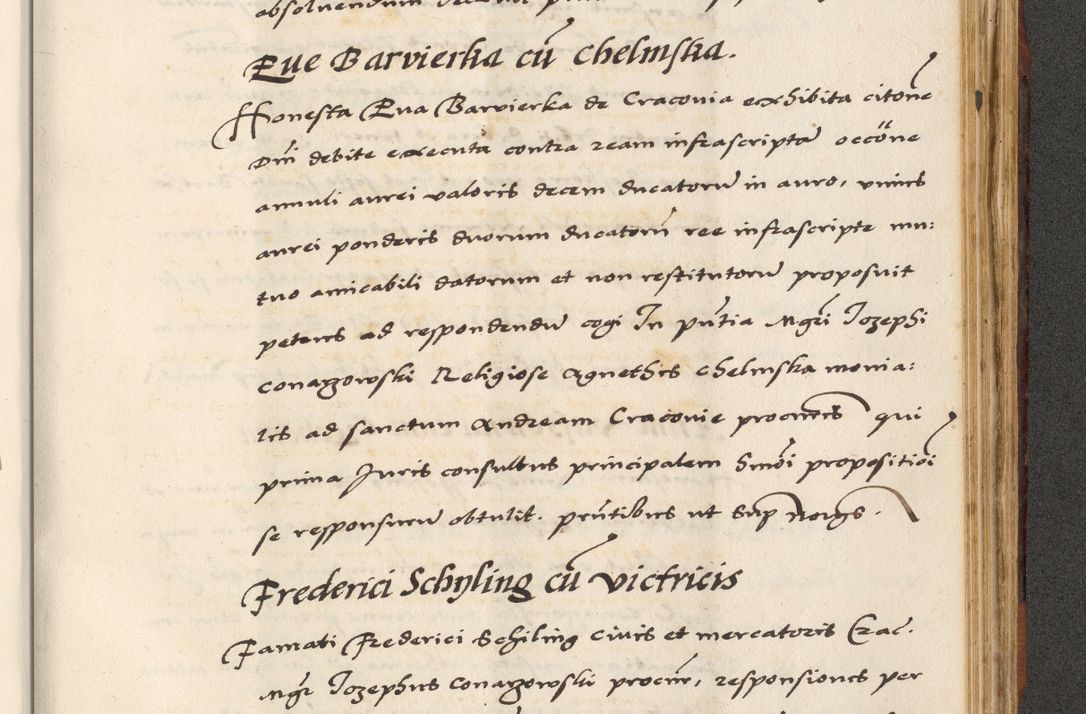 absoluendum
Eue Barvierka cū Chelmska.
Honesta Eua Barvierka de Craconia exhibita citoñe
Dñi debite executa contra ream infrascriptā occõne
annuli aurei valoris decem ducatorū in auro, vnius
aurei ponderis duorum ducatorū ree infrascripte mu:
tuo amicabili datorum et non restitutorū proposuit
petens ad respondendū cogi In pñtia Mgri Iozephi
Conarzowski Religiose Agnethis Chelmska monia:
lis ad sanctum Andream Craconie procuris qui
prima Iuris consultus principalem Smōi propositiōi
se responsurū obtulit. pñtibus ut sup noĩgs.
Frederici Schyling cū victricis
Famati Frederici Schiling ciuis et mercatoris Crac.
Mgr Iozephus Conarzowski procur, responsiones per